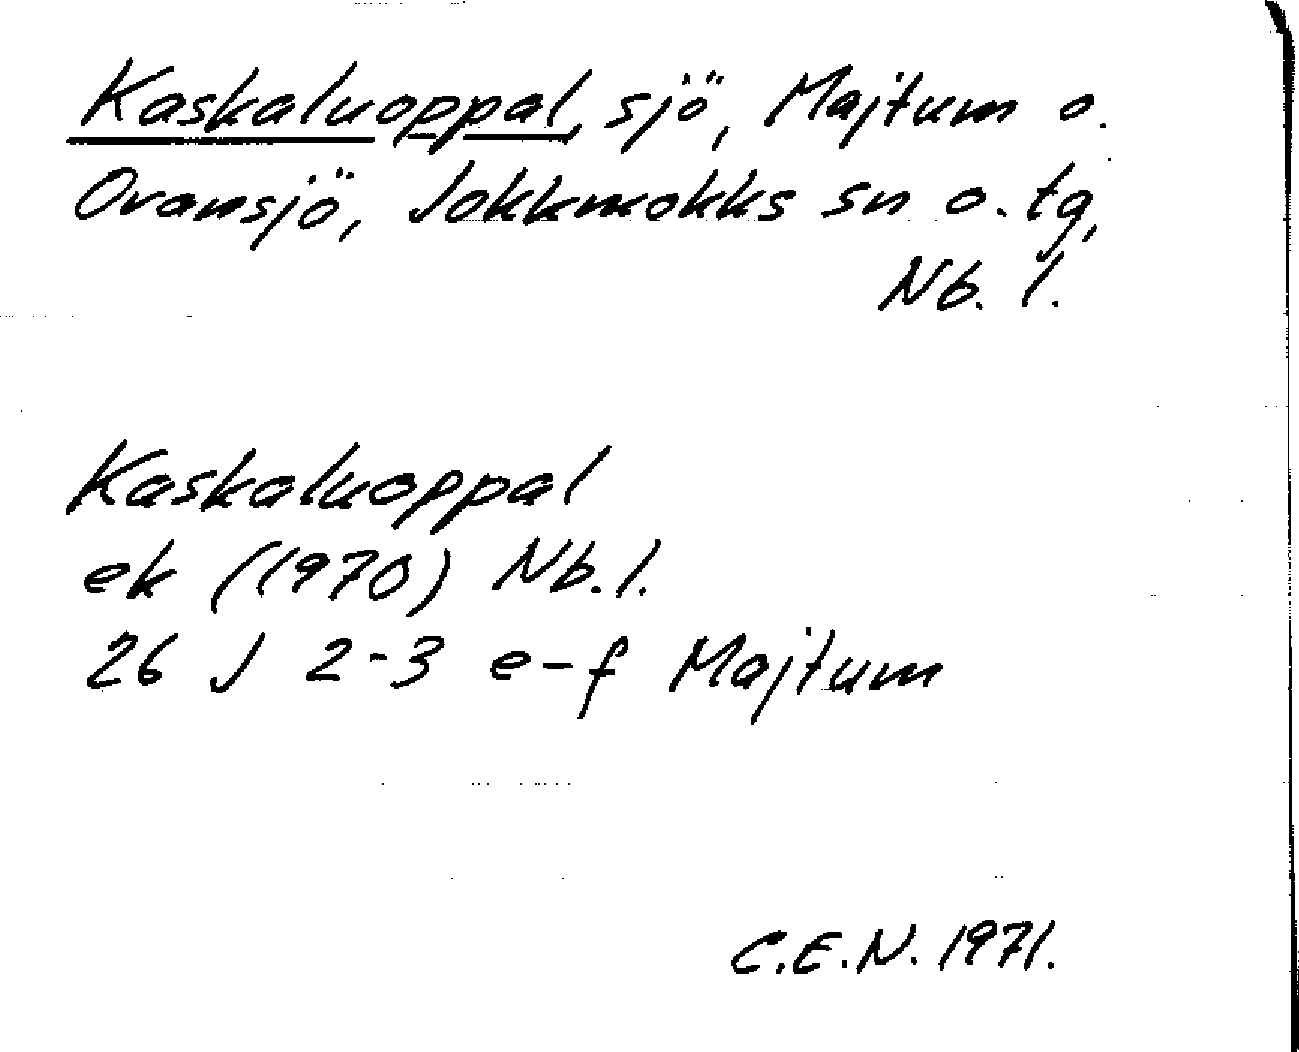 Kaskaluoppal, sjö, Majtum o.
Ovansjö, Jokkmokks sn o. tg,
Nb. l.
Kaskaluoppal
ek (1970) Nb. l.
26 J 2-3 e-f Majtum
C.E.N. 1971.